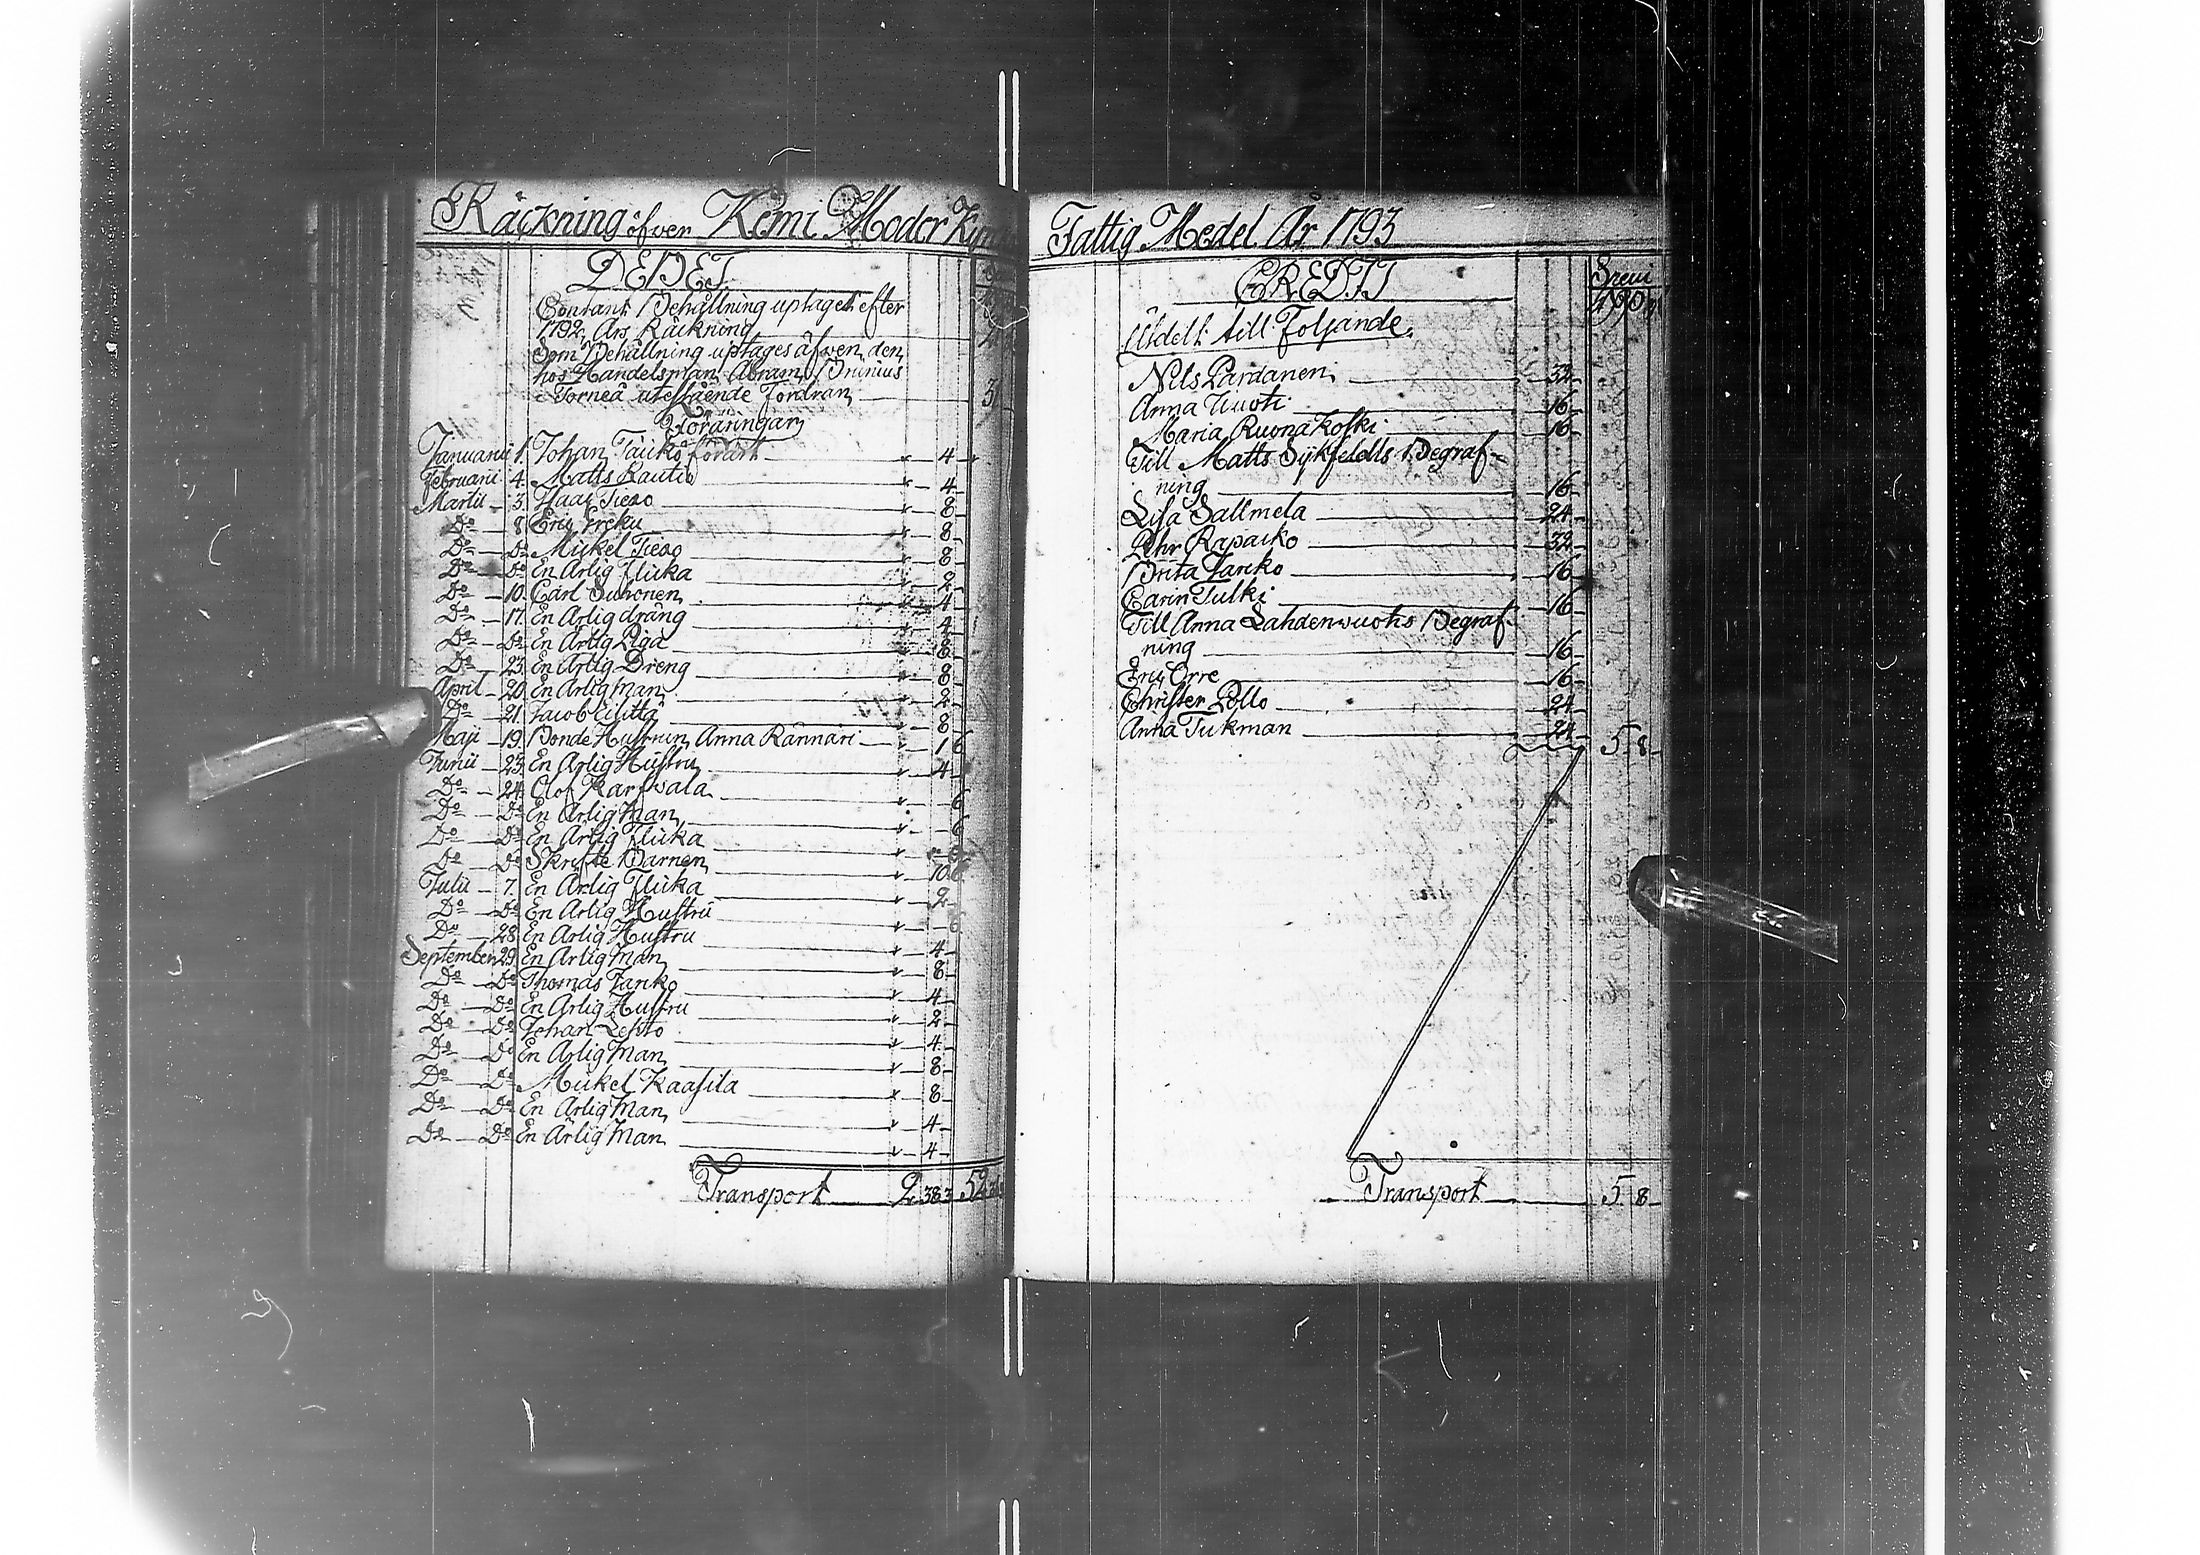 Räckning öfver Kemi Moder
DEBET.
Contant Behållning uptaget efter
1792 Års Räckning
Som Behållning uptages äfwen den
hos Handelsman Abram Brunius
i Torneå utestående Fordran 31
Föräringar
Januarii 1. Johan Taiiko förärt 4
Februarii 4. Matts Rautio 4
Martii 3. Isaac Tiexo 8
Do 8 Eric 8
Do Do Mickel Tiexo 8
Do Do En Ärlig Flicka 2
Do 10. Carl Suhonen 4
Do 17. En Ärlig dräng 4
Do Do En Ärlig Piga 8
Do 23. En Ärlig Dreng 8
April 20. En Ärlig Man 2
Do 21. Jacob Eilittä 8
Maji 19. Bonde Hustrun Anna Rännäri 1 6
Junii 23. En Ärlig Hustru 4
Do 24. Olof Karfwala 6
Do Do En Ärlig Man 6
Do Do En Ärlig Flicka
Do Do Skrifte Barnen 10
Julii 7. En Ärlig Flicka 2
Do Do En Ärlig Hustru 6
Do 28. En Ärlig Hustru 4
September 29. En Ärlig Man 8
Do Do Thomas Janko 4
Do Do En Ärlig Hustru 2
Do Do Johan Lehto 4
Do Do En Ärlig Man 8
Do Do Mickel Kaasila 8
Do Do En Ärlig Man 4
Do Do En Ärlig Man 4
Transport 2 38 3
Fattig Medel År 1793
CREDIT
Utdelt till Följande.
Nils Pardanen 32
Anna Wuoti 16
Maria Ruonakoski 16
Till Matts Sykfeldts Begraf-
ning 16
Lisa Sallmela 24
Pehr Rapaiko 32
Brita Janko 16
Carin Tulki 16
Till Anna Lahdenwuohs Begraf-
ning 16
Eric Orre 16
Christer Pollo 24
Anna Tukman 24 5 8
Transport 5. 8